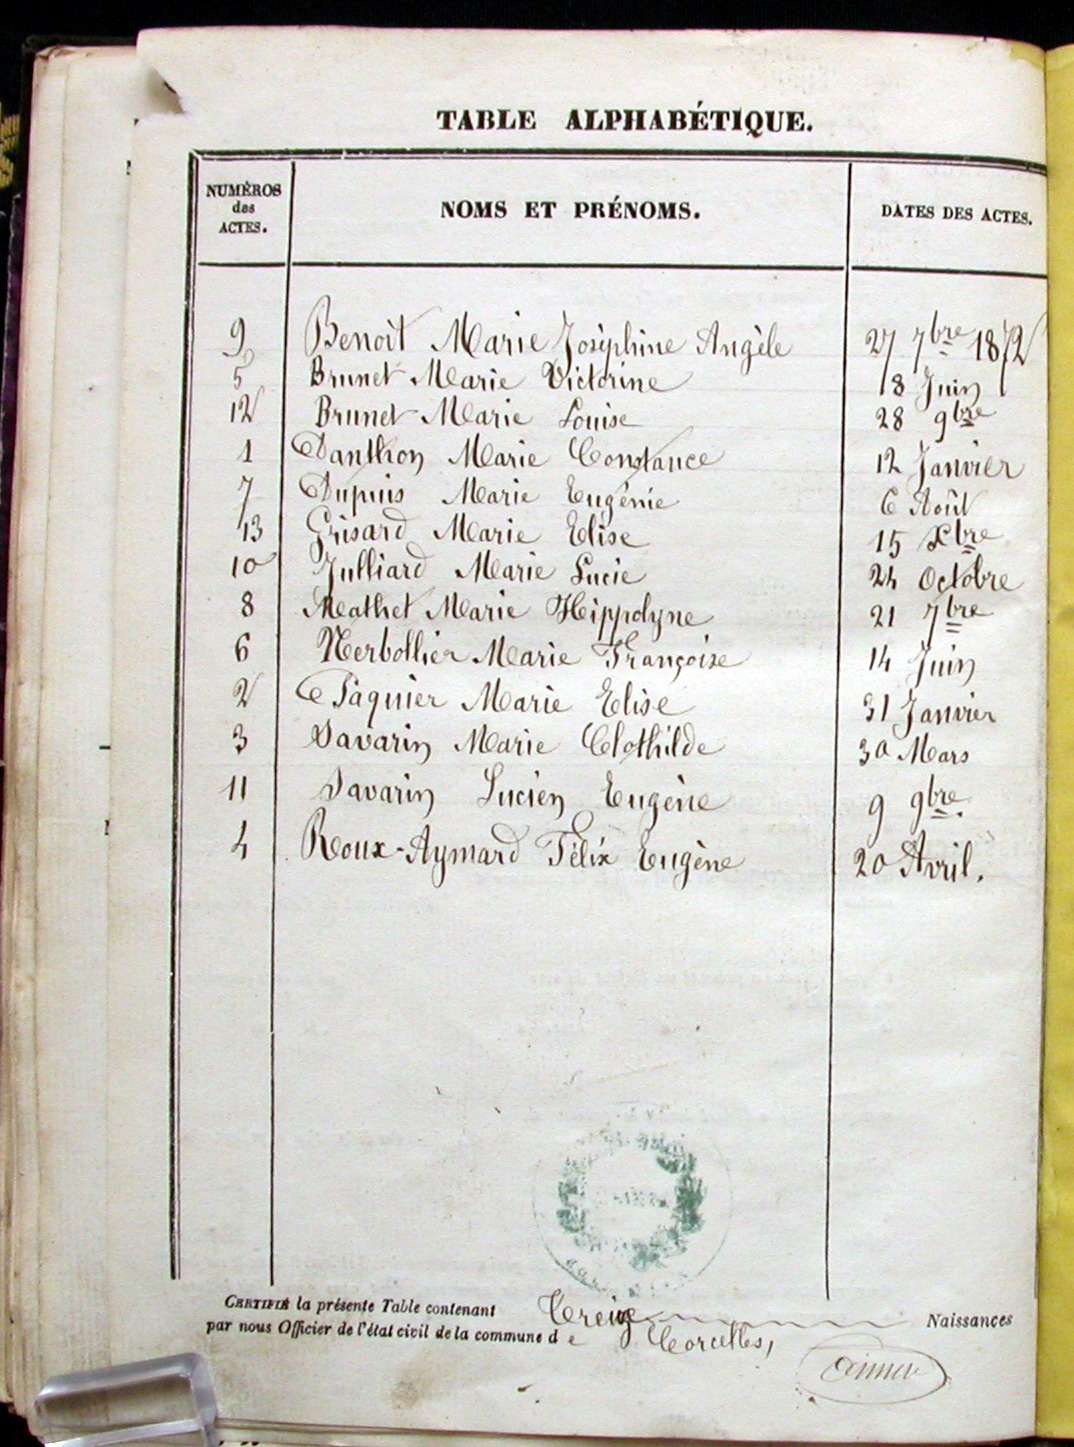 TABLE ALPHABÉTIQUE.
NUMÉROS des ACTES. NOMS ET PRÉNOMS. DATES DES ACTES.
9 Benoit Marie Josèphine Angèle 27 7bre 1872
5 Brunet Marie Victorine 18 Juin
12 Brunet Marie Louise 28 9bre
1 Danthon Marie Constance 12 Janvier
7 Dupuis Marie Eugénie 6 Août
13 Grisard Marie Elise 15 Xbre
10 Julliard Marie Lucie 24 Octobre
8 Mathet Marie Hippolyne 21 7bre
6 Nerbollier Marie Françoise 14 Juin
2 Pâquier Marie Elise 31 Janvier
3 Savarin Marie Clothilde 30 Mars
11 Savarin Lucien Eugène 9 9bre.
4 Roux-Aymard Félix Eugène 20 Avril.
CERTIFIÉ la présente Table contenant Treize Naissances
par nous Officier de l'état civil de la commune de Corcelles,